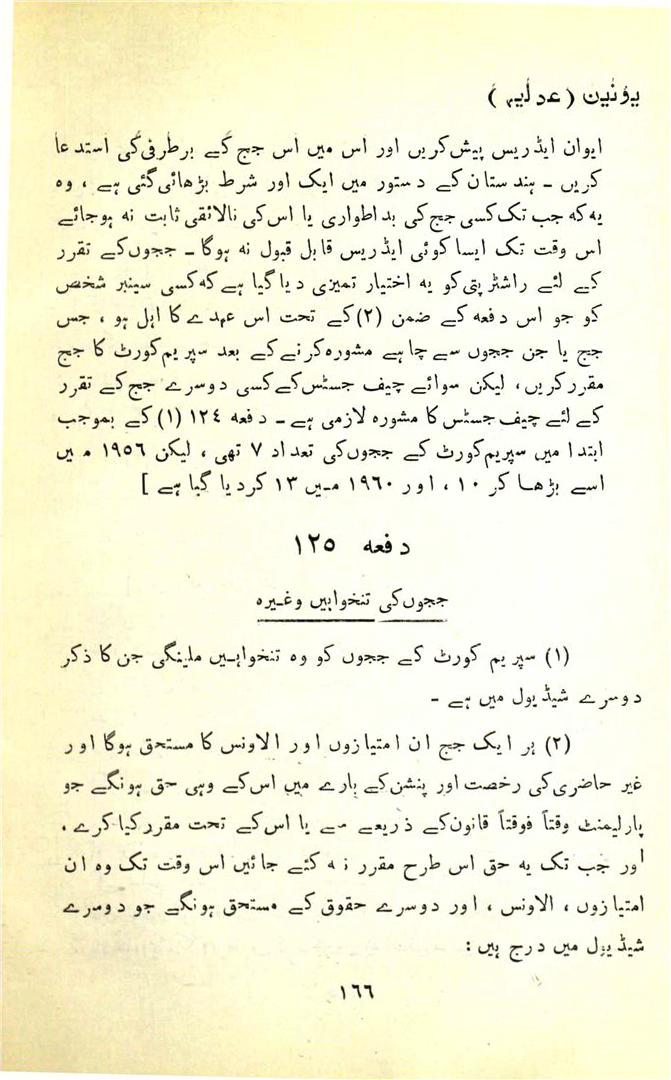 یونین (عدلیہ)
ایوان ایڈریس پیش کریں اور اس میں اس جج کے برطرفی کی استدعا
کریں ۔ ہندستان کے دستور میں ایک اور شرط بڑھائی گئی ہے ، وہ
یہ کہ جب تک کسی جج کی بد اطواری یا اس کی نالائقی ثابت نہ ہوجائے
اس وقت تک ایسا کوئی ایڈریس قابل قبول نہ ہوگا ۔ ججوں کے تقرر
کے لئے راشٹرپتی کو یہ اختیار تمیزی دیا گیا ہے کہ کسی سینیر شخص
کو جو اس دفعہ کے ضمن (٢) کے تحت اس عہدے کا اہل ہو ، جس
جج یا جن ججوں سے چاہے مشورہ کرنے کے بعد سپریم کورٹ کا جج
مقرر کریں ، لیکن سوائے چیف جسٹس کے کسی دوسرے جج کے تقرر
کے لئے چیف جسٹس کا مشورہ لازمی ہے ۔ دفعہ ١٢٤ (١) کے بموجب
ابتدا میں سپریم کورٹ کے ججوں کی تعداد ٧ تھی ، لیکن ١٩٥٦ میں
اسے بڑھا کر ١٠ ، اور ١٩٦٠ میں ١٣ کردیا گیا ہے ]
دفعہ ١٢٥
ججوں کی تنخواہیں وغیرہ
(١) سپریم کورٹ کے ججوں کو وہ تنخواہیں ملینگی جن کا ذکر
دوسرے شیڈیول میں ہے ۔
(٢) ہر ایک جج ان امتیازوں اور الاونس کا مستحق ہوگا اور
غیر حاضری کی رخصت اور پنشن کے بارے میں اس کے وہی حق ہونگے جو
پارلیمنٹ وقتاً فوقتاً قانون کے ذریعے سے یا اس کے تحت مقرر کیا کرے ،
اور جب تک یہ حق اس طرح مقرر نہ کئے جائیں اس وقت تک وہ ان
امتیازوں ، الاونس ، اور دوسرے حقوق کے مستحق ہونگے جو دوسرے
شیڈیول میں درج ہیں :
١٦٦